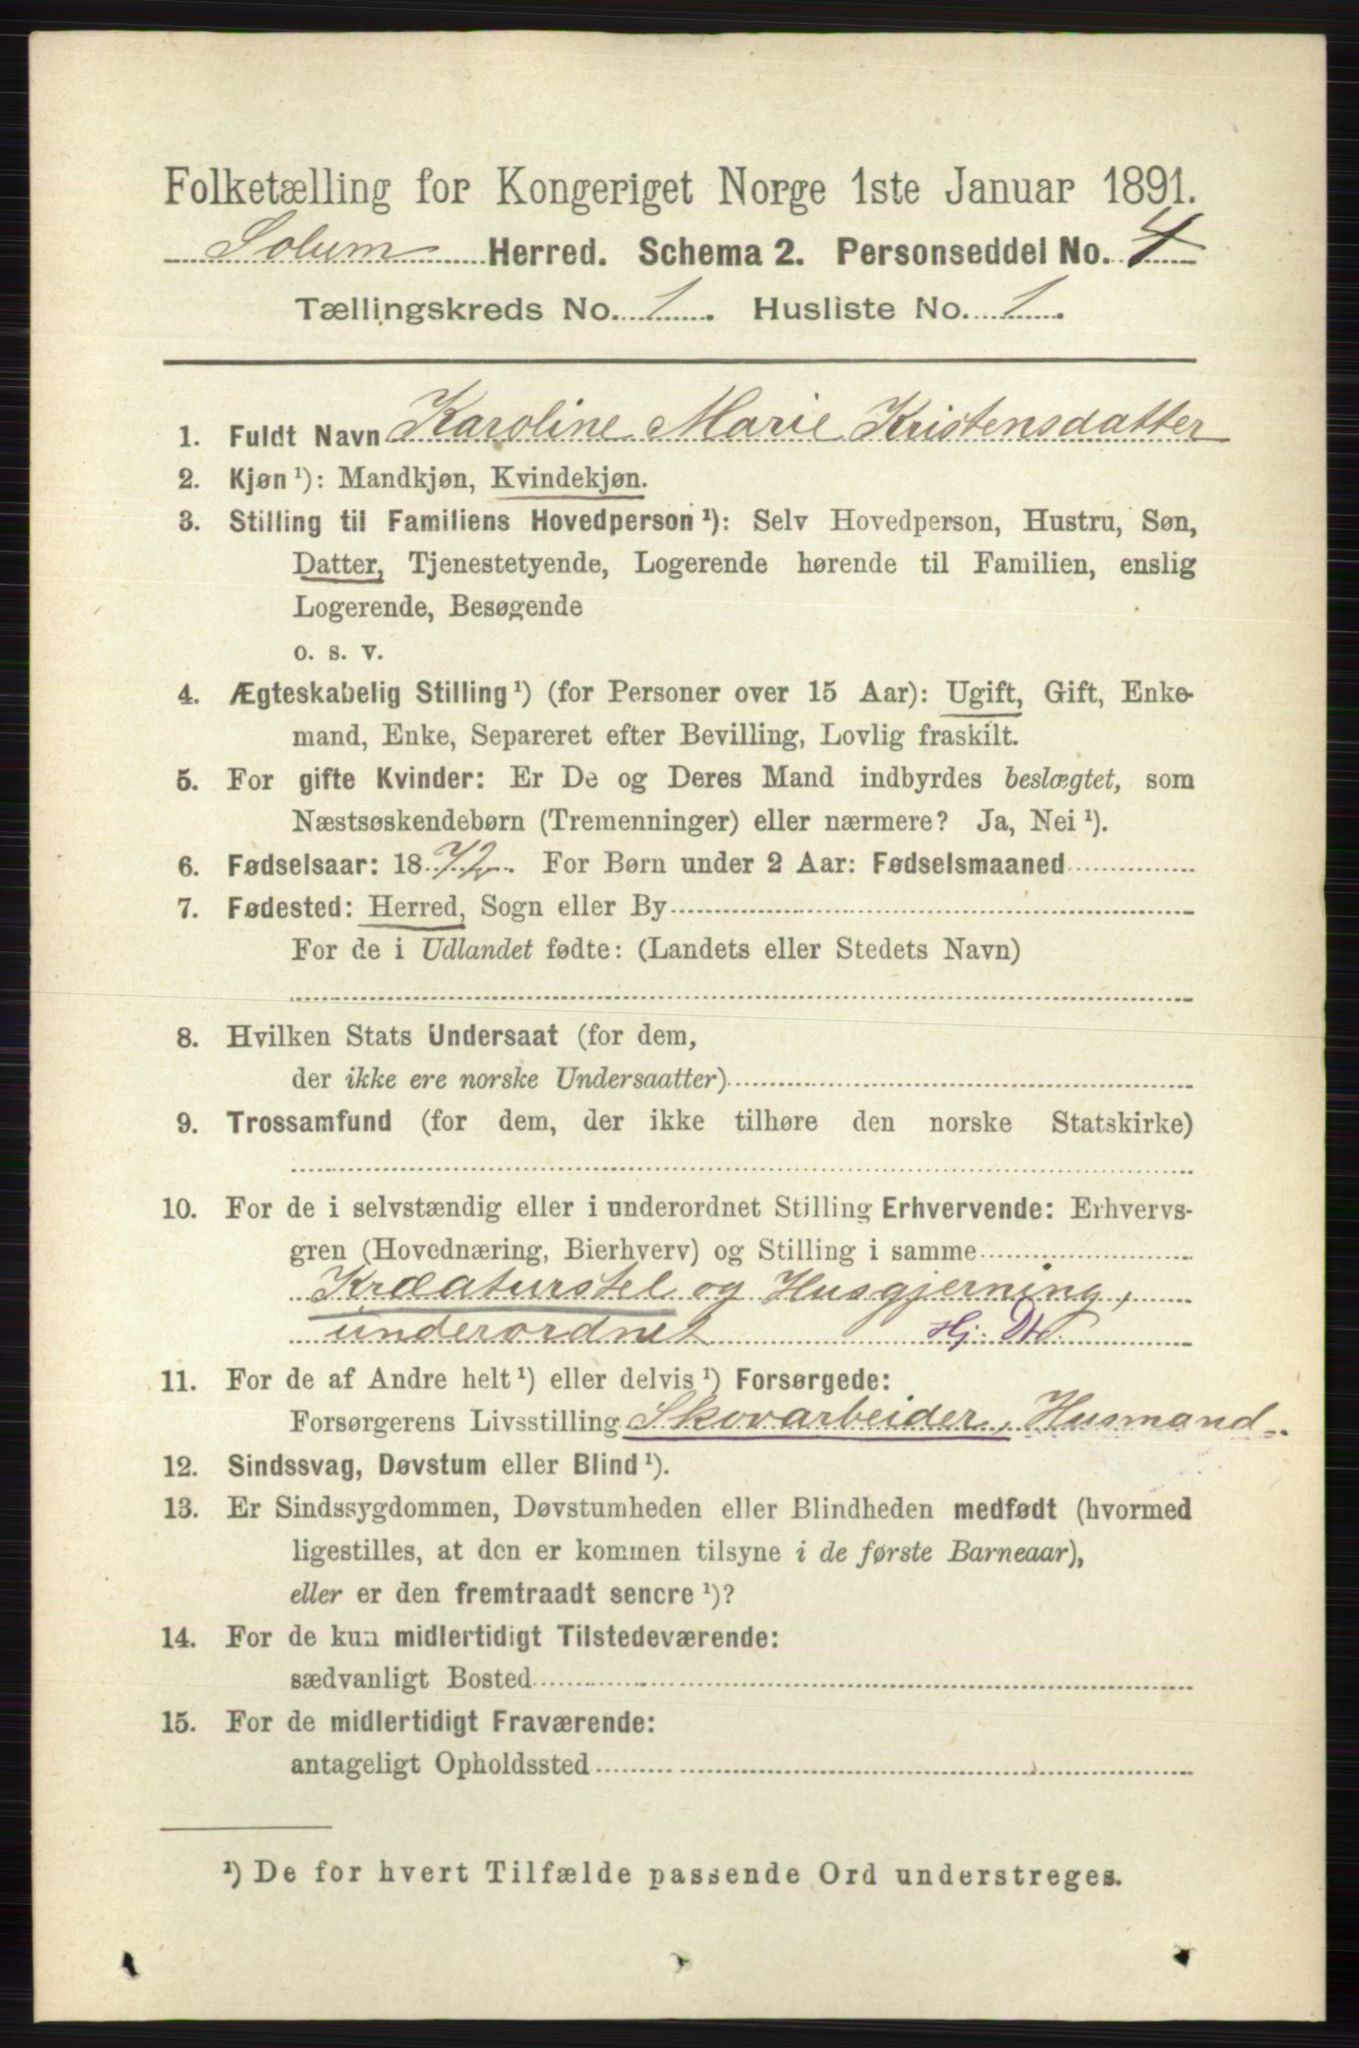 Folketælling for Kongeriget Norge 1ste Januar 1891.
Solum Herred. Schema 2. Personseddel No. 4
Tællingskreds No. 1. Husliste No. 1.
1. Fuldt Navn Karoline Marie Kristensdatter
2. Kjøn ¹): Mandkjøn, Kvindekjøn.
3. Stilling til Familiens Hovedperson ¹): Selv Hovedperson, Hustru, Søn,
Datter, Tjenestetyende, Logerende hørende til Familien, enslig
Logerende, Besøgende
o. s. v.
4. Ægteskabelig Stilling ¹) (for Personer over 15 Aar): Ugift, Gift, Enke-
mand, Enke, Separeret efter Bevilling, Lovlig fraskilt.
5. For gifte Kvinder: Er De og Deres Mand indbyrdes beslægtet, som
Næstsøskendebørn (Tremenninger) eller nærmere? Ja, Nei ¹).
6. Fødselsaar: 1872. For Børn under 2 Aar: Fødselsmaaned
7. Fødested: Herred, Sogn eller By
For de i Udlandet fødte: (Landets eller Stedets Navn)
8. Hvilken Stats Undersaat (for dem,
der ikke ere norske Undersaatter)
9. Trossamfund (for dem, der ikke tilhøre den norske Statskirke)
10. For de i selvstændig eller i underordnet Stilling Erhvervende: Erhvervs-
gren (Hovednæring, Bierhverv) og Stilling i samme
Kræaturstel og Husgjerning,
underordnet Hj. Dtr.
11. For de af Andre helt ¹) eller delvis ¹) Forsørgede:
Forsørgerens Livsstilling Skovarbeider, Husmand.
12. Sindssvag, Døvstum eller Blind ¹).
13. Er Sindssygdommen, Døvstumheden eller Blindheden medfødt (hvormed
ligestilles, at den er kommen tilsyne i de første Barneaar),
eller er den fremtraadt senere ¹)?
14. For de kun midlertidigt Tilstedeværende:
sædvanligt Bosted
15. For de midlertidigt Fraværende:
antageligt Opholdssted
¹) De for hvert Tilfælde passende Ord understreges.